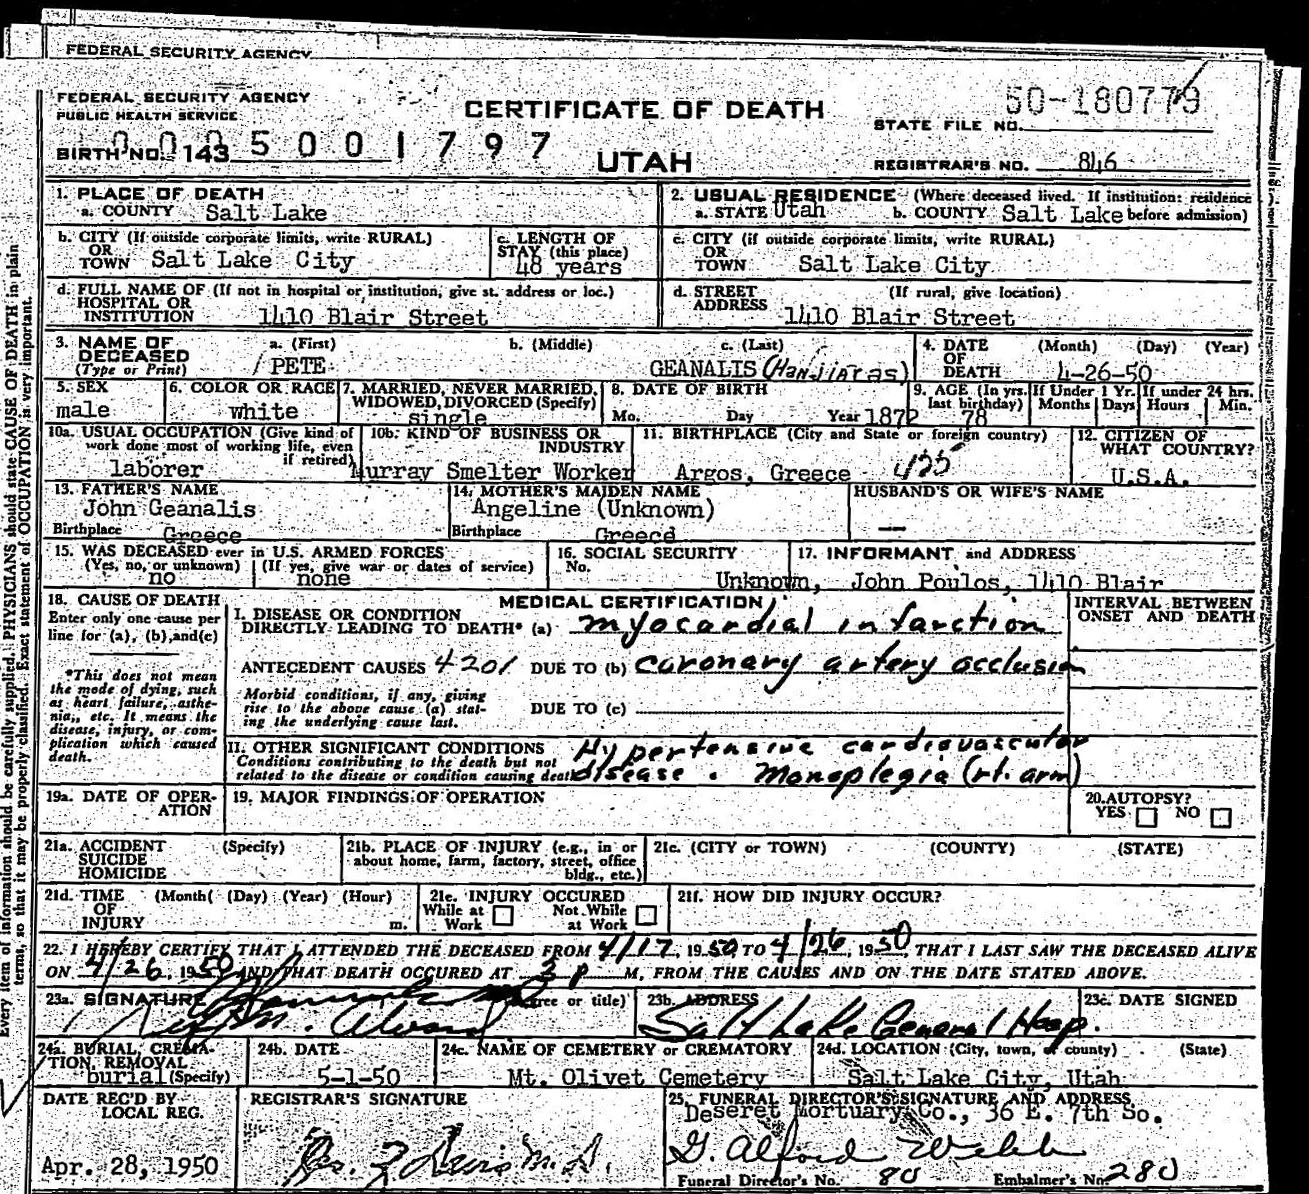 FEDERAL SECURITY AGENCY
FEDERAL SECURITY AGENCY
PUBLIC HEALTH SERVICE
CERTIFICATE OF DEATH
UTAH
50-180779
STATE FILE NO.
BIRTH NO. 143
0005001797
REGISTRAR'S NO. 846
1. PLACE OF DEATH
a. COUNTY Salt Lake
2. USUAL RESIDENCE (Where deceased lived. If institution: residence before admission)
a. STATE Utah b. COUNTY Salt Lake
b. CITY (If outside corporate limits, write RURAL) OR TOWN Salt Lake City
c. LENGTH OF STAY (this place) 48 years
c. CITY (if outside corporate limits, write RURAL) OR TOWN Salt Lake City
d. FULL NAME OF (If not in hospital or institution, give st. address or loc.) HOSPITAL OR INSTITUTION 1410 Blair Street
d. STREET ADDRESS (If rural, give location) 1410 Blair Street
3. NAME OF DECEASED (Type or Print)
a. (First) PETE
b. (Middle)
c. (Last) GEANALIS (Hanjiaras)
4. DATE OF DEATH (Month) (Day) (Year) 4-26-50
5. SEX male
6. COLOR OR RACE white
7. MARRIED, NEVER MARRIED, WIDOWED, DIVORCED (Specify) single
8. DATE OF BIRTH Mo. Day Year 1872
9. AGE (In yrs. last birthday) 78
If Under 1 Yr. Months Days
If under 24 hrs. Hours Min.
10a. USUAL OCCUPATION (Give kind of work done most of working life, even if retired) laborer
10b. KIND OF BUSINESS OR INDUSTRY Murray Smelter Worker
11. BIRTHPLACE (City and State or foreign country) Argos, Greece 435
12. CITIZEN OF WHAT COUNTRY? U.S.A.
13. FATHER'S NAME John Geanalis
Birthplace Greece
14. MOTHER'S MAIDEN NAME Angeline (Unknown)
Birthplace Greece
HUSBAND'S OR WIFE'S NAME —
15. WAS DECEASED ever in U.S. ARMED FORCES
(Yes, no, or unknown) no
(If yes, give war or dates of service) none
16. SOCIAL SECURITY No. Unknown,
17. INFORMANT and ADDRESS John Poulos, 1410 Blair
18. CAUSE OF DEATH
Enter only one cause per line for (a), (b), and (c)
*This does not mean the mode of dying, such as heart failure, asthenia, etc. It means the disease, injury, or complication which caused death.
MEDICAL CERTIFICATION
INTERVAL BETWEEN ONSET AND DEATH
I. DISEASE OR CONDITION DIRECTLY LEADING TO DEATH* (a) myocardial infarction
ANTECEDENT CAUSES 4201 DUE TO (b) coronary artery occlusion
Morbid conditions, if any, giving rise to the above cause (a) stating the underlying cause last.
DUE TO (c)
II. OTHER SIGNIFICANT CONDITIONS
Conditions contributing to the death but not related to the disease or condition causing death
Hypertensive cardiovascular disease. Monoplegia (rt. arm)
19a. DATE OF OPERATION
19. MAJOR FINDINGS OF OPERATION
20. AUTOPSY? YES NO
21a. ACCIDENT SUICIDE HOMICIDE (Specify)
21b. PLACE OF INJURY (e.g., in or about home, farm, factory, street, office bldg., etc.)
21c. (CITY or TOWN) (COUNTY) (STATE)
21d. TIME OF INJURY (Month) (Day) (Year) (Hour) m.
21e. INJURY OCCURED While at Work Not While at Work
21f. HOW DID INJURY OCCUR?
22. I HEREBY CERTIFY THAT I ATTENDED THE DECEASED FROM 4/17, 1950, TO 4/26, 1950, THAT I LAST SAW THE DECEASED ALIVE
ON 4/26, 1950 AND THAT DEATH OCCURED AT 3 p M, FROM THE CAUSES AND ON THE DATE STATED ABOVE.
23a. SIGNATURE (Degree or title)
23b. ADDRESS Salt Lake General Hosp.
23c. DATE SIGNED
24a. BURIAL, CREMATION, REMOVAL (Specify) burial
24b. DATE 5-1-50
24c. NAME OF CEMETERY or CREMATORY Mt. Olivet Cemetery
24d. LOCATION (City, town, or county) (State) Salt Lake City, Utah
DATE REC'D BY LOCAL REG. Apr. 28, 1950
REGISTRAR'S SIGNATURE
25. FUNERAL DIRECTOR'S SIGNATURE AND ADDRESS
Deseret Mortuary Co., 36 E. 7th So.
G. Alford Webb
Funeral Director's No. 80 Embalmer's No. 280
Every item of information should be carefully supplied. PHYSICIANS should state CAUSE OF DEATH in plain
terms, so that it may be properly classified. Exact statement of OCCUPATION is very important.